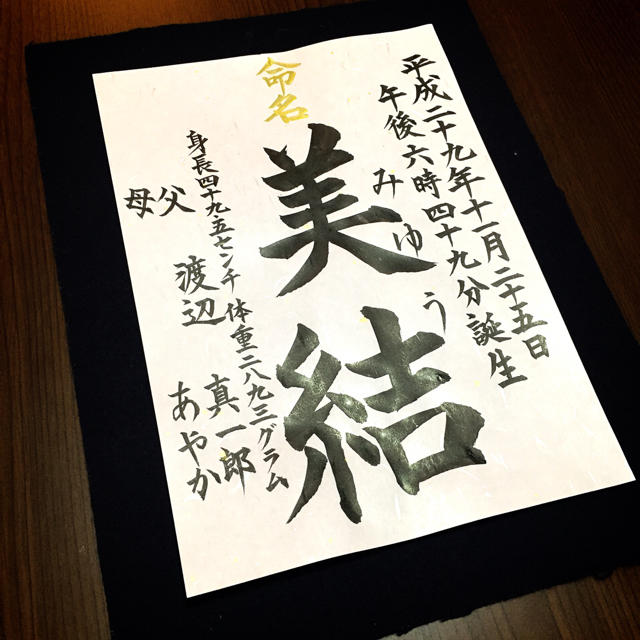 平成二十九年十一月二十五日
午後六時四十九分誕生
みゆう
命名
美結
身長四十九.五センチ 体重二八九三グラム
父 渡辺 真一郎
母 あやか